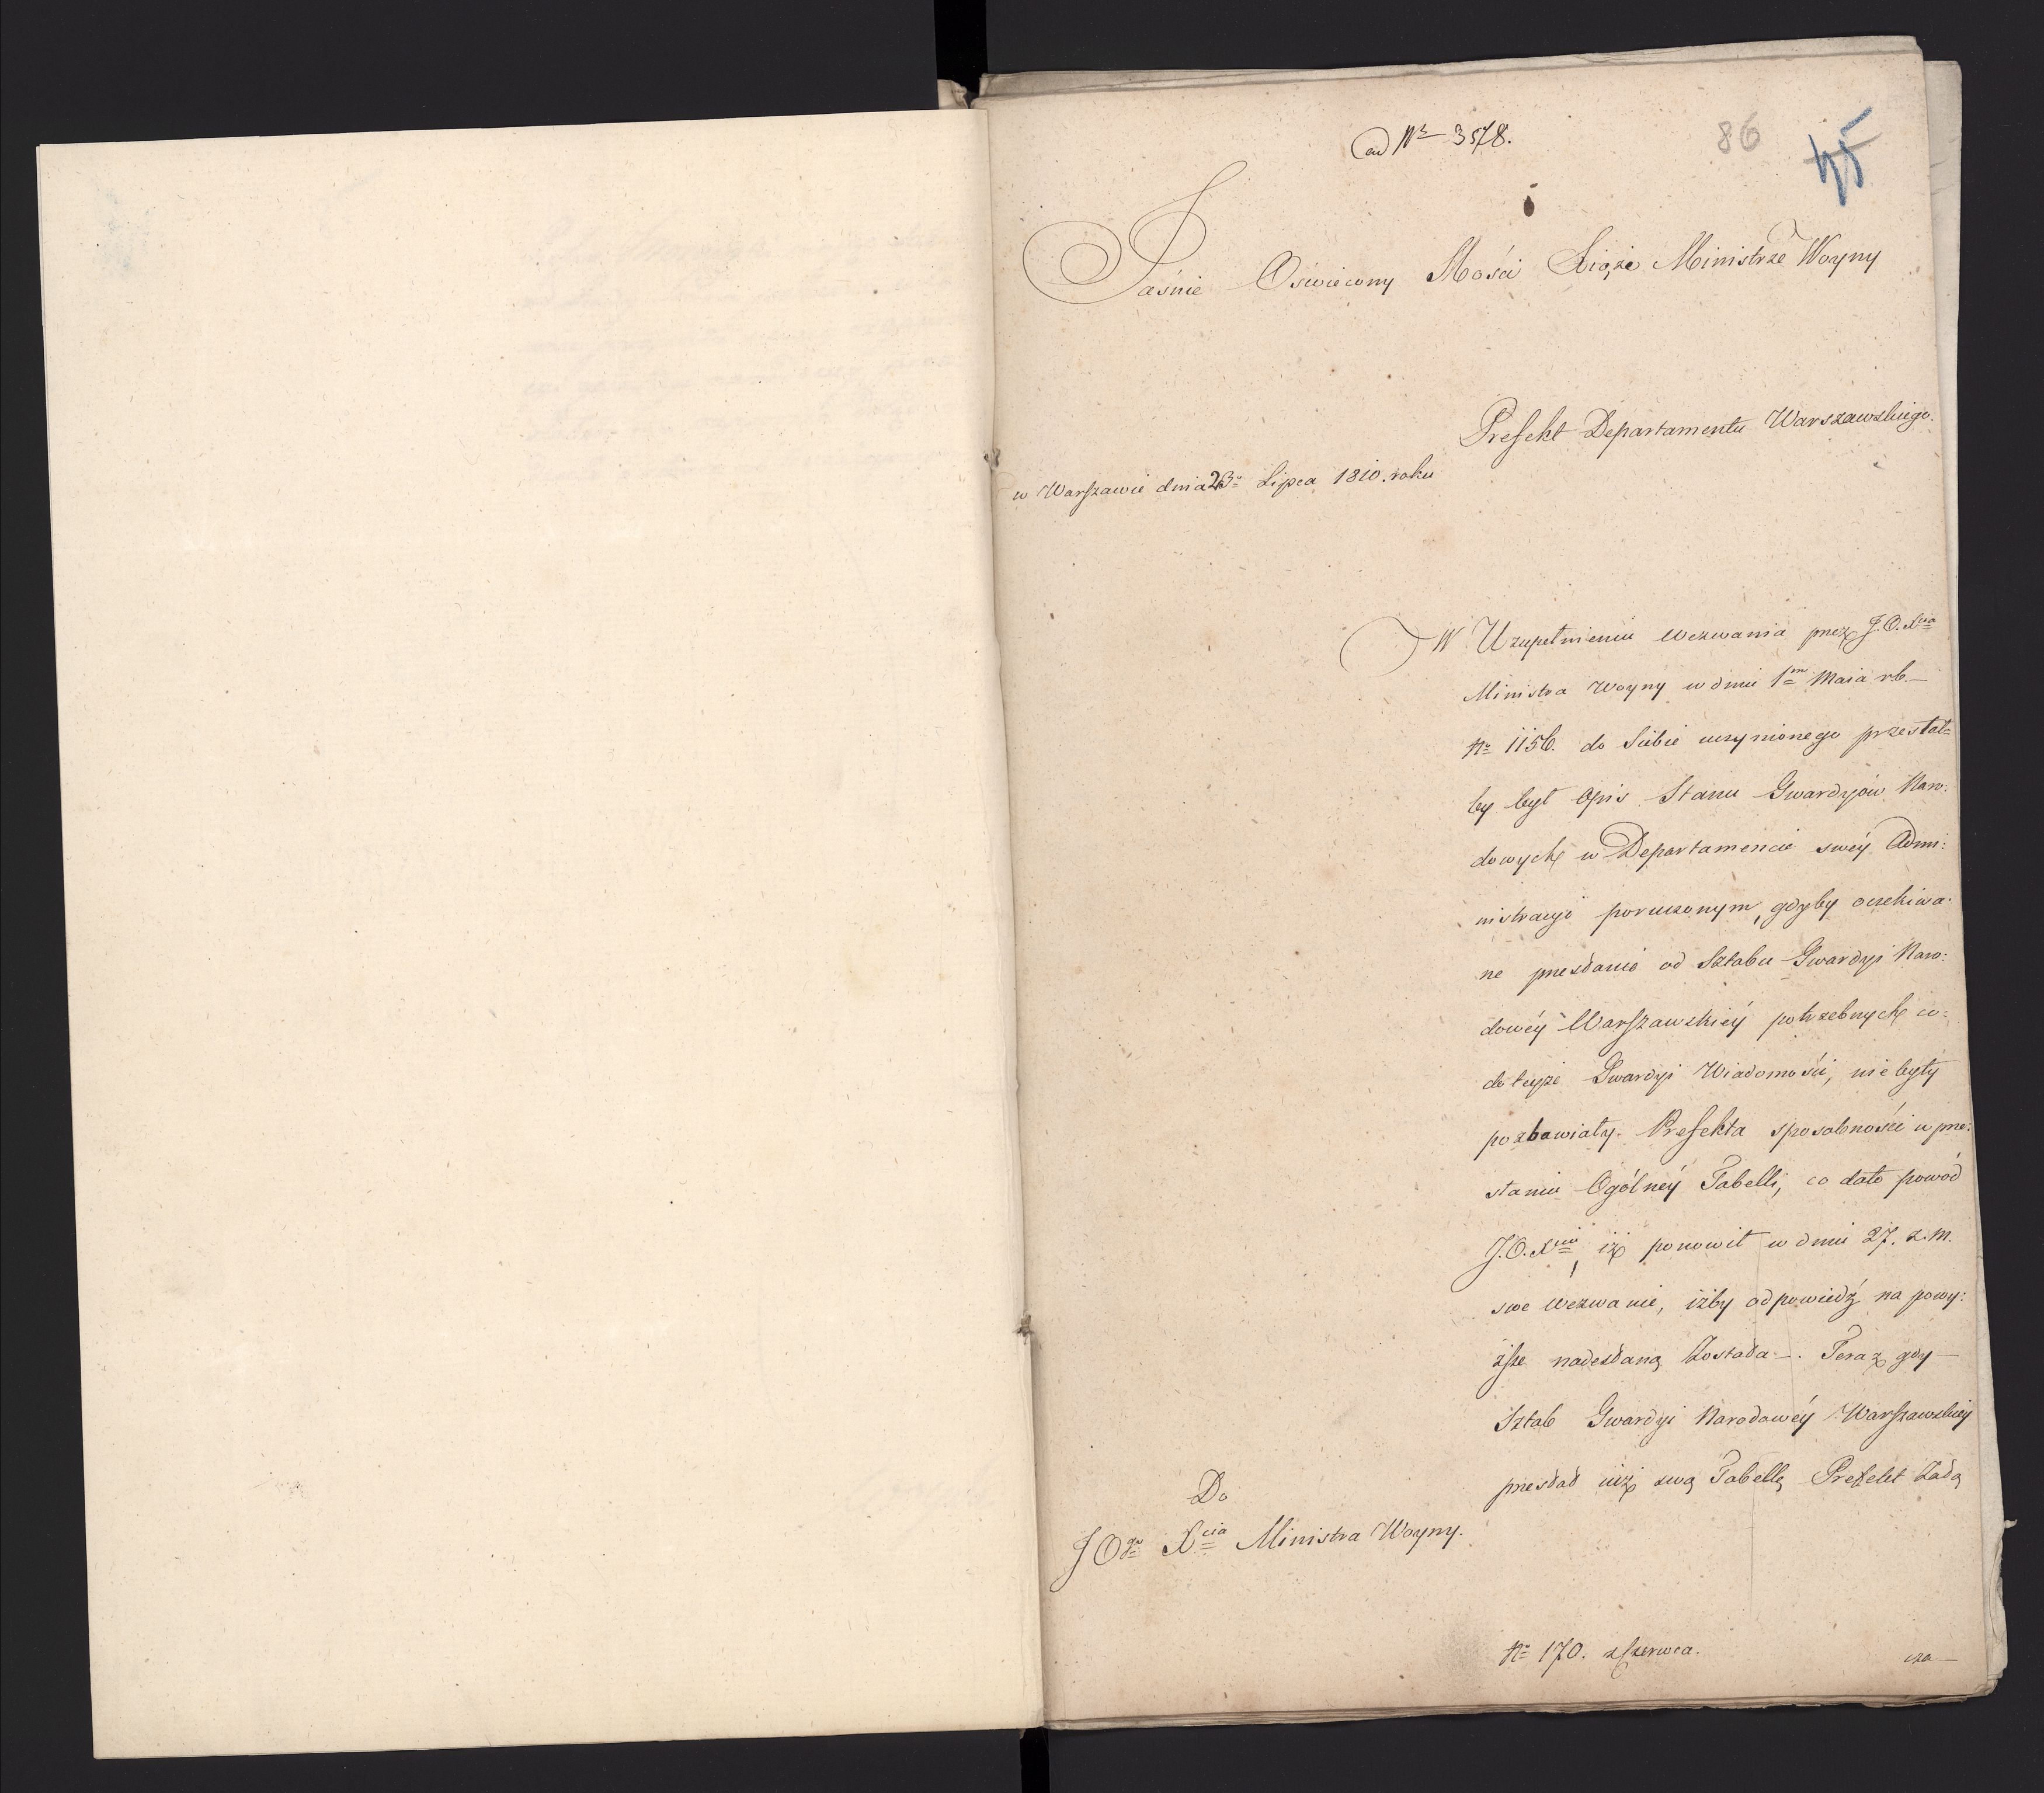 ad Nr 3578.
86
45
Jaśnie Oświecony Mości Xiąże Ministrze Woyny
Prefekt Departamentu Warszawskiego.
w Warszawie dnia 23o Lipca 1810. roku
W Uzupełnieniu Wezwania przez J.O. Xcia
Ministra Woyny w dniu 1m Maia rb.—
No 1156. do Siebie uczynionego przesłał=
by był Opis Stanu Gwardyiów Naro:
dowych w Departamencie swéy Admi:
nistracyi poruczonym, gdyby oczekiwa:
ne przesłanie od Sztabu Gwardyi Naro:
dowéy Warszawskiéy potrzebnych co=
do teyże Gwardyi Wiadomości, nie były
pozbawiały Prefekta sposobności w prze:
słaniu Ogólnéy Tabelli, co dało powód
J.O. Xciu, iż ponowił w dniu 27. z.m.
swe wezwanie, iżby odpowiedź na powy:
ższe nadesłaną Została —. Teraz gdy —
Sztab Gwardyi Narodowéy Warszawskiey
przesłał iuż swą Tabellę Prefekt Zała
Do
J O go Xcia Ministra Woyny.
No 170. z Czerwca.
cza —